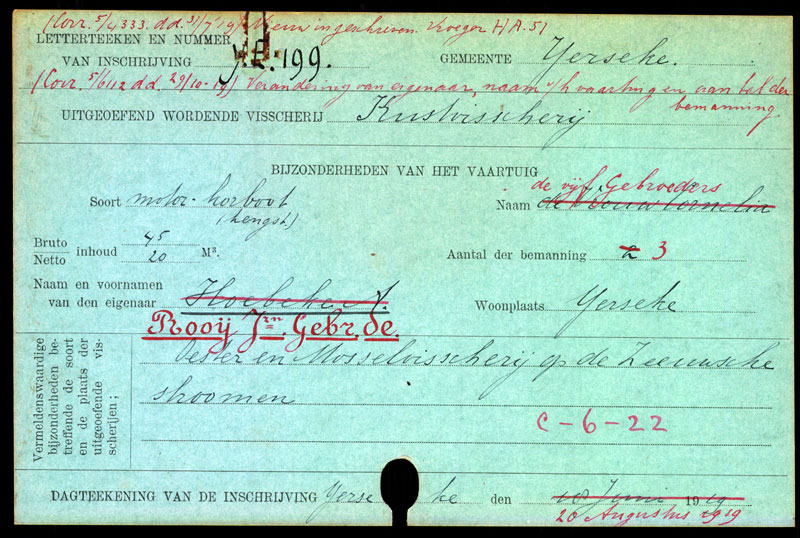 (Corr. 5/4333. dd. 31/7-19) Nieuw ingeschreven. Vroeger HA.51
LETTERTEEKEN EN NUMMER
VAN INSCHRIJVING YE. 199. GEMEENTE Yerseke.
(Corr. 5/6112 dd. 29/10-19) Verandering van eigenaar, naam v/h vaartuig en aantal der
bemanning
UITGEOEFEND WORDENDE VISSCHERIJ Kustvisscherij
BIJZONDERHEDEN VAN HET VAARTUIG
de vijf Gebroeders
Soort motor-korboot Naam de Vrouw Cornelia
(hengst)
Bruto 45
Netto inhoud 20 M³. Aantal der bemanning 2 3
Naam en voornamen
van den eigenaar Hoebeke J. Woonplaats Yerseke
Rooÿ Jrn. Gebr. de.
Vermeldenswaardige
bijzonderheden be-
treffende de soort
en de plaats der
uitgeoefende vis-
scherijen;
Oester en Mosselvisscherij op de Zeeuwsche
stroomen
C-6-22
DAGTEEKENING VAN DE INSCHRIJVING Yerseke den 10 Juni 1919
20 Augustus 1919